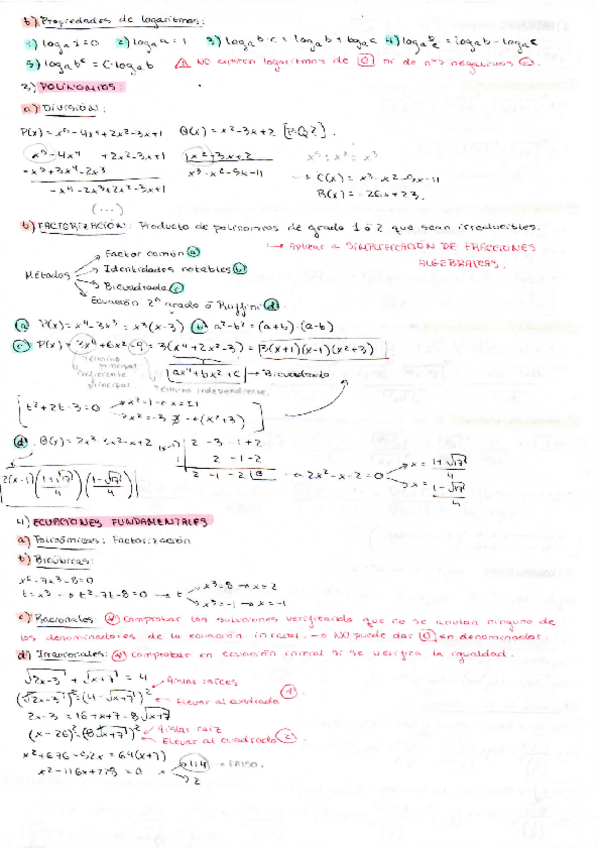 b) Propiedades de logaritmos:
1) logₐ1=0 2) logₐa=1 3) logₐb·c = logₐb + logₐc 4) logₐ b/c = logₐb - logₐc
5) logₐbᶜ = c·logₐb ⚠ NO existen logaritmos de 0 ni de nºs negativos
2) POLINOMIOS:
a) DIVISIÓN:
P(x)= x⁵-4x⁴+2x²-3x+1 Q(x)= x²-3x+2 [P:Q?].
x⁵-4x⁴ +2x²-3x+1 |x²-3x+2 x⁵:x²=x³
-x⁵+3x⁴-2x³ x³-x²-5x-11 → C(x)= x³-x²-5x-11
-x⁴-2x³+2x²-3x+1 R(x)= -26x+23.
(...)
b) FACTORIZACIÓN: Producto de polinomios de grado 1 ó 2 que sean irreducibles.
↳ Aplicar a SIMPLIFICACIÓN DE FRACCIONES
ALGEBRAICAS.
Factor común a
Métodos Identidades notables b
Bicuadrada c
Ecuación 2º grado o Ruffini d
a P(x)= x⁴-3x³ = x³(x-3) b a²-b² = (a+b)·(a-b)
c P(x)= 3x⁴+6x²-9 = 3(x⁴+2x²-3) = 3(x+1)(x-1)(x²+3)
Término principal
Coeficiente principal
ax⁴+bx²+c → Bicuadrada
Término independiente.
t²+2t-3=0 x²=1 → x=±1
x²=-3 ∄ → (x²+3)
d Q(x)= 2x³-3x²-x+2 2 -3 -1 +2
2 -1 -2
2 -1 -2 0 → 2x²-x-2=0 x= 1+√17/4
x= 1-√17/4
2(x-1)(1+√17/4)(1-√17/4)
4) ECUACIONES FUNDAMENTALES
a) Polinómicas: Factorización
b) Bicúbicas:
x⁶-7x³-8=0
t=x³ → t²-7t-8=0 → t x³=8 → x=2
x³=-1 → x=-1
c) Racionales: Comprobar las soluciones verificando que no se anulan ninguno de
los denominadores de la ecuación inicial. → NO puede dar 0 en denominador.
d) Irracionales: Comprobar en ecuación inicial si se verifica la igualdad.
√2x-3 + √x+7 = 4 ← Aislar raíces
(√2x-3)² = (4-√x+7)² ← Elevar al cuadrado 1
2x-3 = 16+x+7-8√x+7
(x-26)² = (-8√x+7)² ← Aislar raíz
Elevar al cuadrado 2
x²+676-52x = 64(x+7)
x²-116x+228=0 x 114 → FALSO.
2